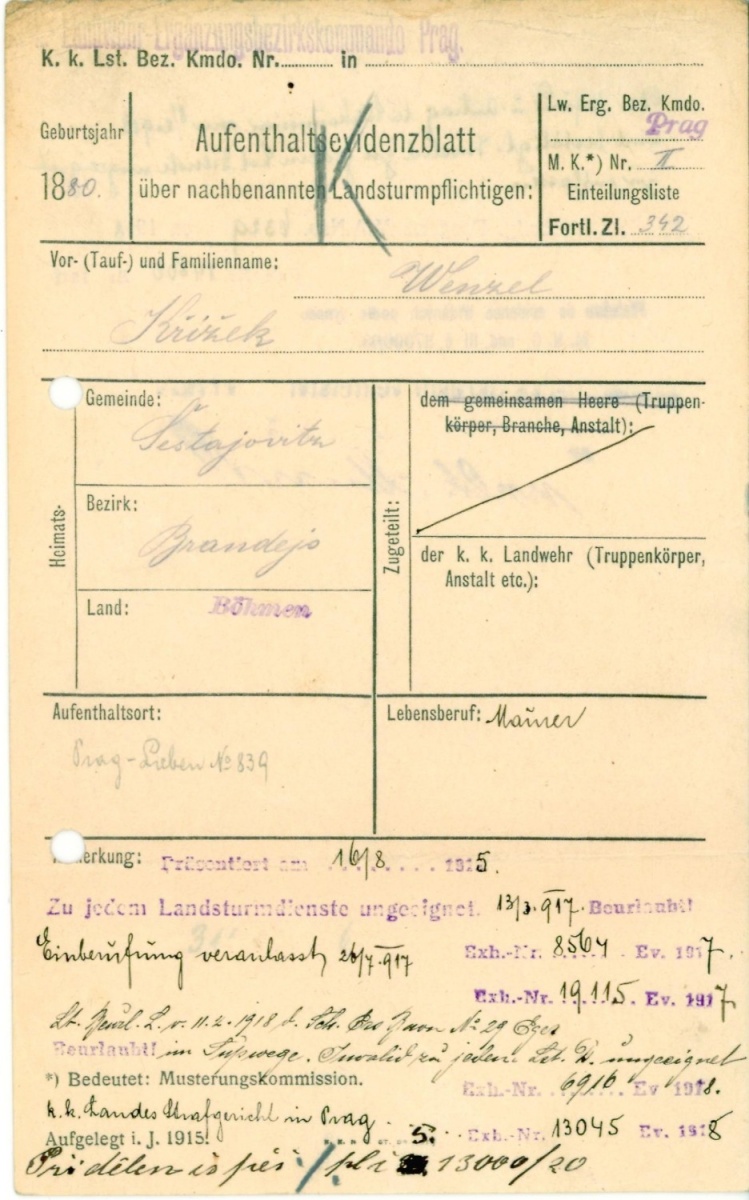 Landwehr-Ergänzungsbezirkskommando Prag.
K. k. Lst. Bez. Kmdo. Nr. in
Geburtsjahr
1880.
Aufenthaltsevidenzblatt
über nachbenannten Landsturmpflichtigen:
K
Lw. Erg. Bez. Kmdo.
Prag
M. K.*) Nr. II
Einteilungsliste
Fortl. Zl. 342
Vor- (Tauf-) und Familienname: Wenzel
Křížek
Heimats-
Gemeinde:
Šestajovitz
Bezirk:
Brandejs
Land: Böhmen
Zugeteilt:
dem gemeinsamen Heere (Truppen-
körper, Branche, Anstalt):
der k. k. Landwehr (Truppenkörper,
Anstalt etc.):
Aufenthaltsort:
Prag-Lieben No 839
Lebensberuf: Maurer
merkung: Präsentiert am 16/8 1915.
Zu jedem Landsturmdienste ungeeignet. 13/3. 917. Beurlaubt!
Einberufung veranlasst, 26/7 917 Exh.-Nr. 8564 Ev. 1917.
Exh.-Nr. 19.115 Ev. 1917
Lt. v. 11.2.1918 d. No 29
Beurlaubt! im Supwege. Invalid zu jedem Lst. D. ungeeignet
*) Bedeutet: Musterungskommission. Exh.-Nr. 6916 Ev 1918.
k.k. Landes Strafgericht in Prag
Aufgelegt i. J. 1915. 5. Exh.-Nr. 13045 Ev. 1918
Přidělen 13000/20